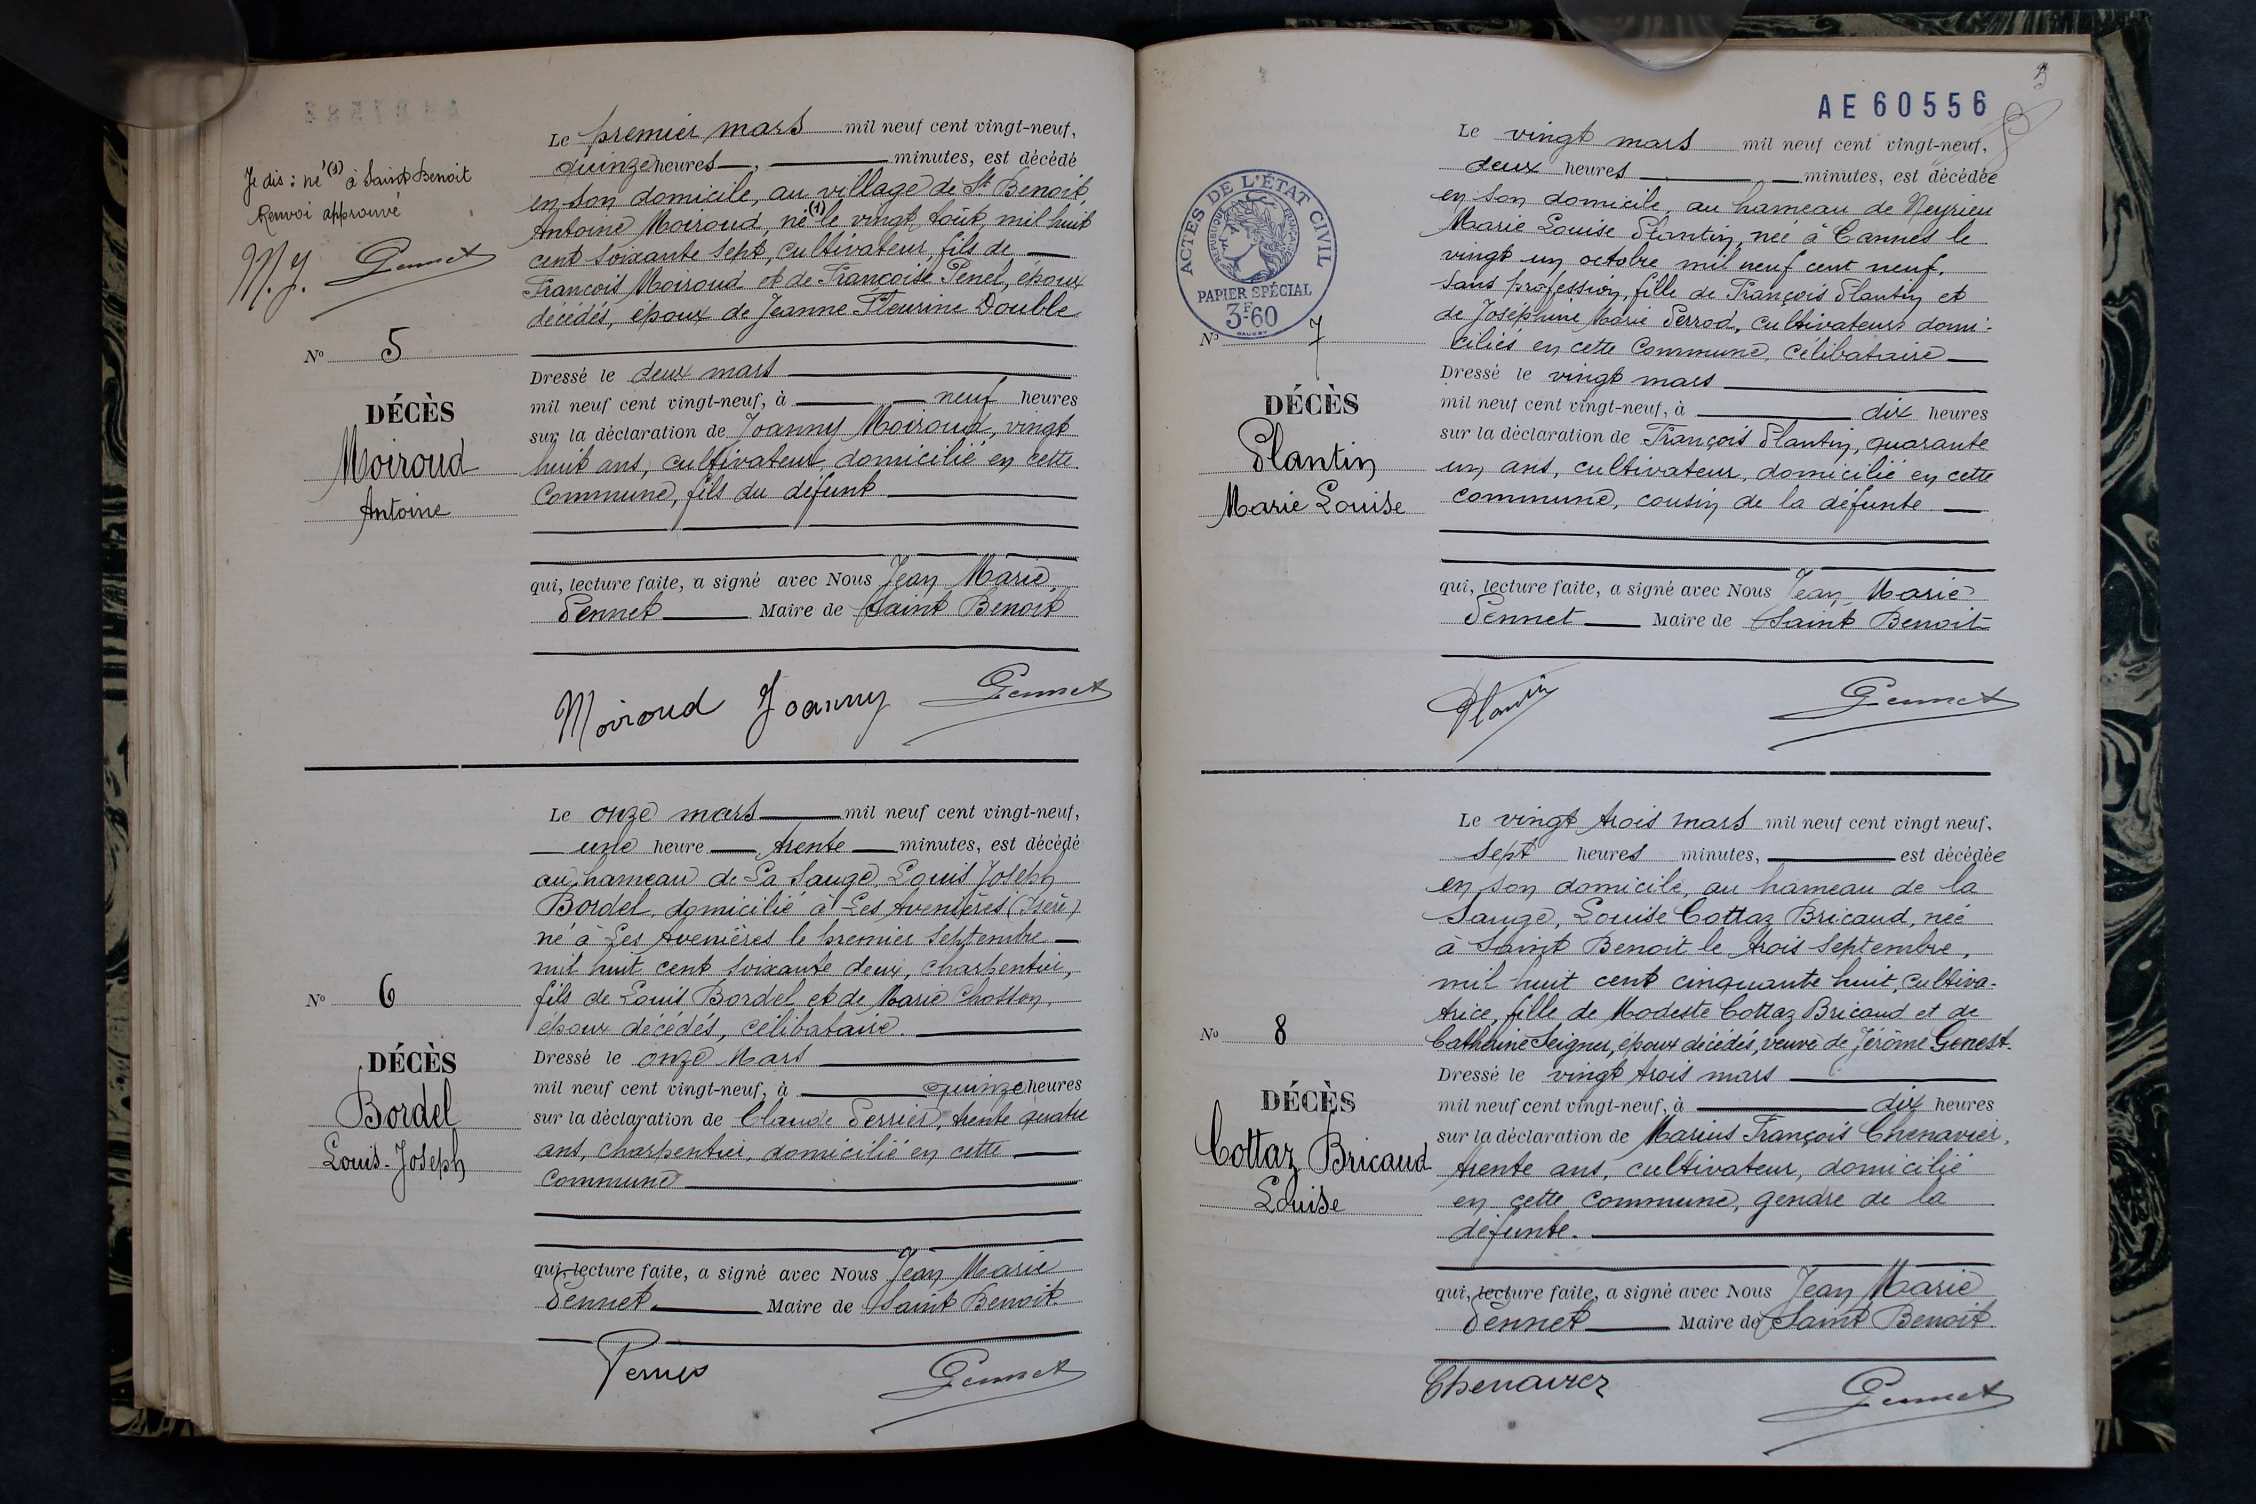 Je dis : né (1) à Saint Benoit
Renvoi approuvé
M. J. Pennet
Le premier mars mil neuf cent vingt-neuf,
quinze heures, minutes, est décédé
en son domicile, au village de St Benoit,
Antoine Moiroud, né (1) le vingt août mil huit
cent soixante sept, cultivateur, fils de
François Moiroud et de Françoise Penel, époux
décédés, époux de Jeanne Fleurine Double
No 5
DÉCÈS
Moiroud
Antoine
Dressé le deux mars
mil neuf cent vingt-neuf, à neuf heures
sur la déclaration de Joanny Moiroud, vingt
huit ans, cultivateur, domicilié en cette
Commune, fils du défunt
qui, lecture faite, a signé avec Nous Jean Marie
Pennet Maire de Saint Benoit
Moiroud Joanny Pennet
Le onze mars mil neuf cent vingt-neuf,
une heure trente minutes, est décédé
au hameau de La Sauge, Louis Joseph
Bordel, domicilié à Les Avenières (Isère)
né à Les Avenières le premier septembre
mil huit cent soixante deux, charpentier,
fils de Louis Bordel et de Marie Chosson,
époux décédés, célibataire.
No 6
DÉCÈS
Bordel
Louis-Joseph
Dressé le onze Mars
mil neuf cent vingt-neuf, à quinze heures
sur la déclaration de Claude Perrier, trente quatre
ans, charpentier, domicilié en cette
Commune
qui, lecture faite, a signé avec Nous Jean Marie
Pennet Maire de Saint Benoit.
Pennet
AE 60556
ACTES DE L'ÉTAT CIVIL
RÉPUBLIQUE FRANÇAISE
PAPIER SPÉCIAL
3F60
Le vingt mars mil neuf cent vingt-neuf,
deux heures minutes, est décédée
en son domicile, au hameau de Neyrieu
Marie Louise Plantin, née à Cannes le
vingt un octobre mil neuf cent neuf.
sans profession, fille de François Plantin et
de Joséphine Marie Perrod, cultivateurs domi-
ciliés en cette Commune, célibataire
No 7
DÉCÈS
Plantin
Marie Louise
Dressé le vingt mars
mil neuf cent vingt-neuf, à dix heures
sur la déclaration de François Plantin, quarante
un ans, cultivateur, domicilié en cette
commune, cousin de la défunte
qui, lecture faite, a signé avec Nous Jean Marie
Pennet Maire de Saint Benoit
Plantin Pennet
Le vingt trois mars mil neuf cent vingt neuf,
sept heures minutes, est décédée
en son domicile, au hameau de la
Sauge, Louise Cottaz Bricaud, née
à Saint Benoit le trois septembre,
mil huit cent cinquante huit, cultiva-
trice, fille de Modeste Cottaz Bricaud et de
Catherine Seigner, époux décédés, veuve de Jérôme Genest.
No 8
DÉCÈS
Cottaz Bricaud
Louise
Dressé le vingt trois mars
mil neuf cent vingt-neuf, à dix heures
sur la déclaration de Marius François Chenavier,
trente ans, cultivateur, domicilié
en cette commune, gendre de la
défunte.
qui, lecture faite, a signé avec Nous Jean Marie
Pennet Maire de Saint Benoit
Chenavier Pennet